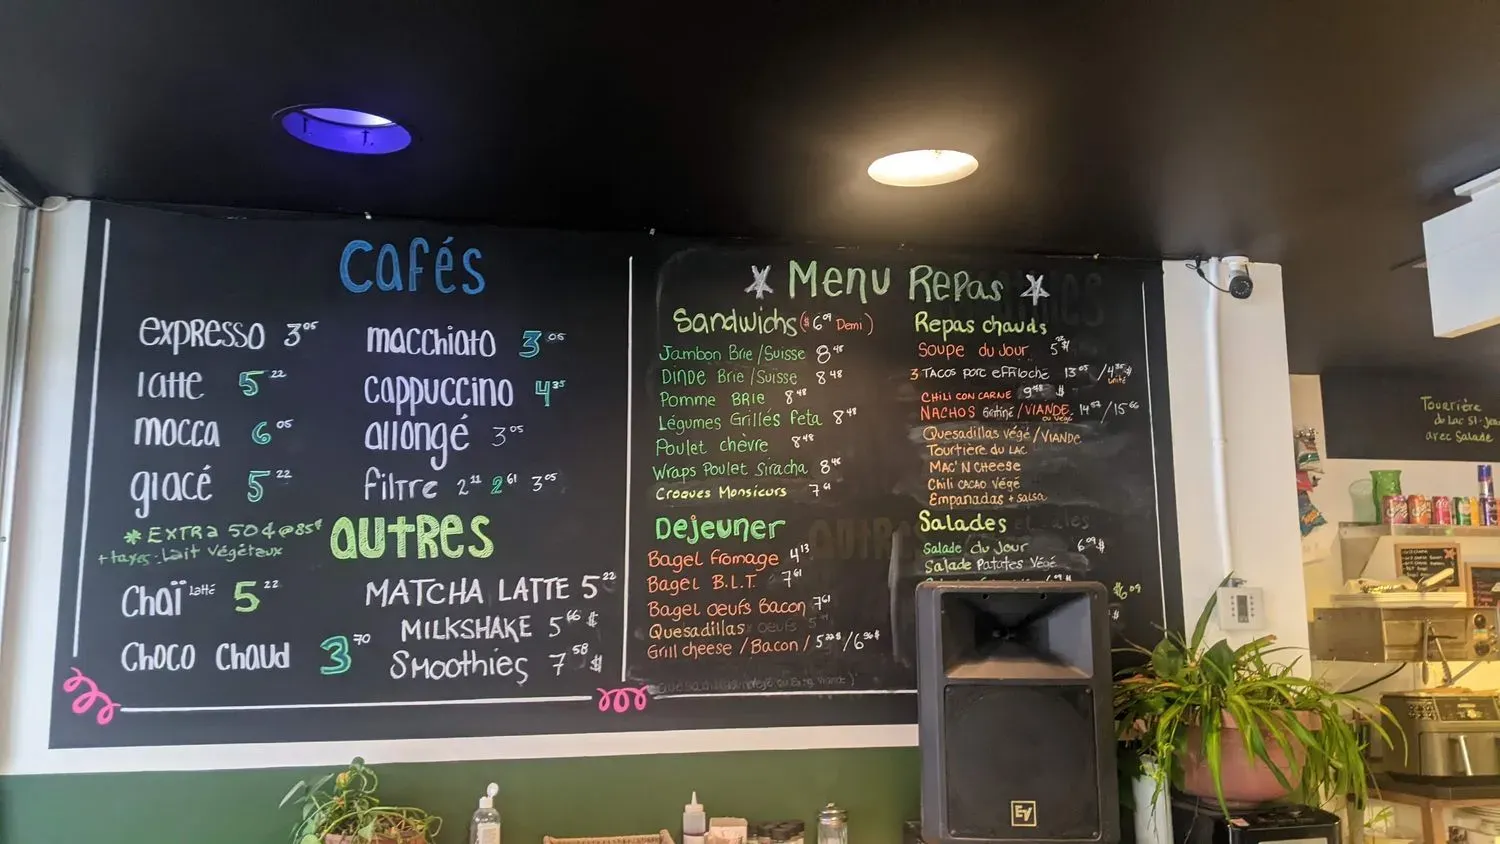 Cafés
expresso 3.05
macchiato 3.05
latte 5.22
cappuccino 4.35
mocca 6.05
allongé 3.05
glacé 5.22
filtre 2.11 2.61 3.05
* EXTRA 50¢@85¢
+taxes. Lait végétaux
autres
Chaï latté 5.22
MATCHA LATTE 5.22
MILKSHAKE 5.66 $
Choco Chaud 3.70
Smoothies 7.58 $
Menu Repas
Sandwichs ($6.09 Demi)
Jambon Brie/Suisse 8.48
DINDE Brie/Suisse 8.48
Pomme BRIE 8.48
Légumes Grillés Feta 8.48
Poulet chèvre 8.48
Wraps Poulet Siracha 8.48
Croques Monsieurs 7.61
Dejeuner
Bagel fromage 4.13
Bagel B.L.T. 7.61
Bagel oeufs Bacon 7.61
Quesadillas oeufs
Grill cheese /Bacon/ 5 /6
Repas chauds
Soupe du Jour 5.22$
3 TACOS porc effiloché 13.05 /4.35$
unité
Chili con carne 9 $
NACHOS /VIANDE 14.57/15.66
ou végé
Quesadillas végé/VIANDE
Tourtière du LAC
MAC'N CHEESE
Chili CACAO Végé
Empanadas + salsa
Salades
Salade du Jour 6.09$
Salade Patates Végé
6.09
EV
Tourtière
du Lac St-Jean
avec Salade